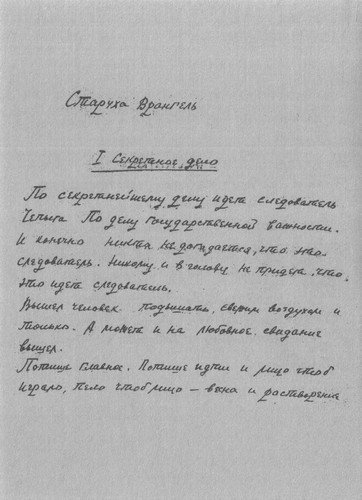 Старуха Врангель
I Секретное дело
По секретнейшему делу идет следователь
Чепыга По делу государственной важности.
И конечно никто не догадается, что это
следователь. Никому и в голову не придет, что,
это идет следователь.
Вышел человек подышать, свежим воздухом и
только. А может и на любовное свидание
вышел.
Потише главное. Потише идти и лицо чтоб
играло, пело чтоб лицо – весна и растворение